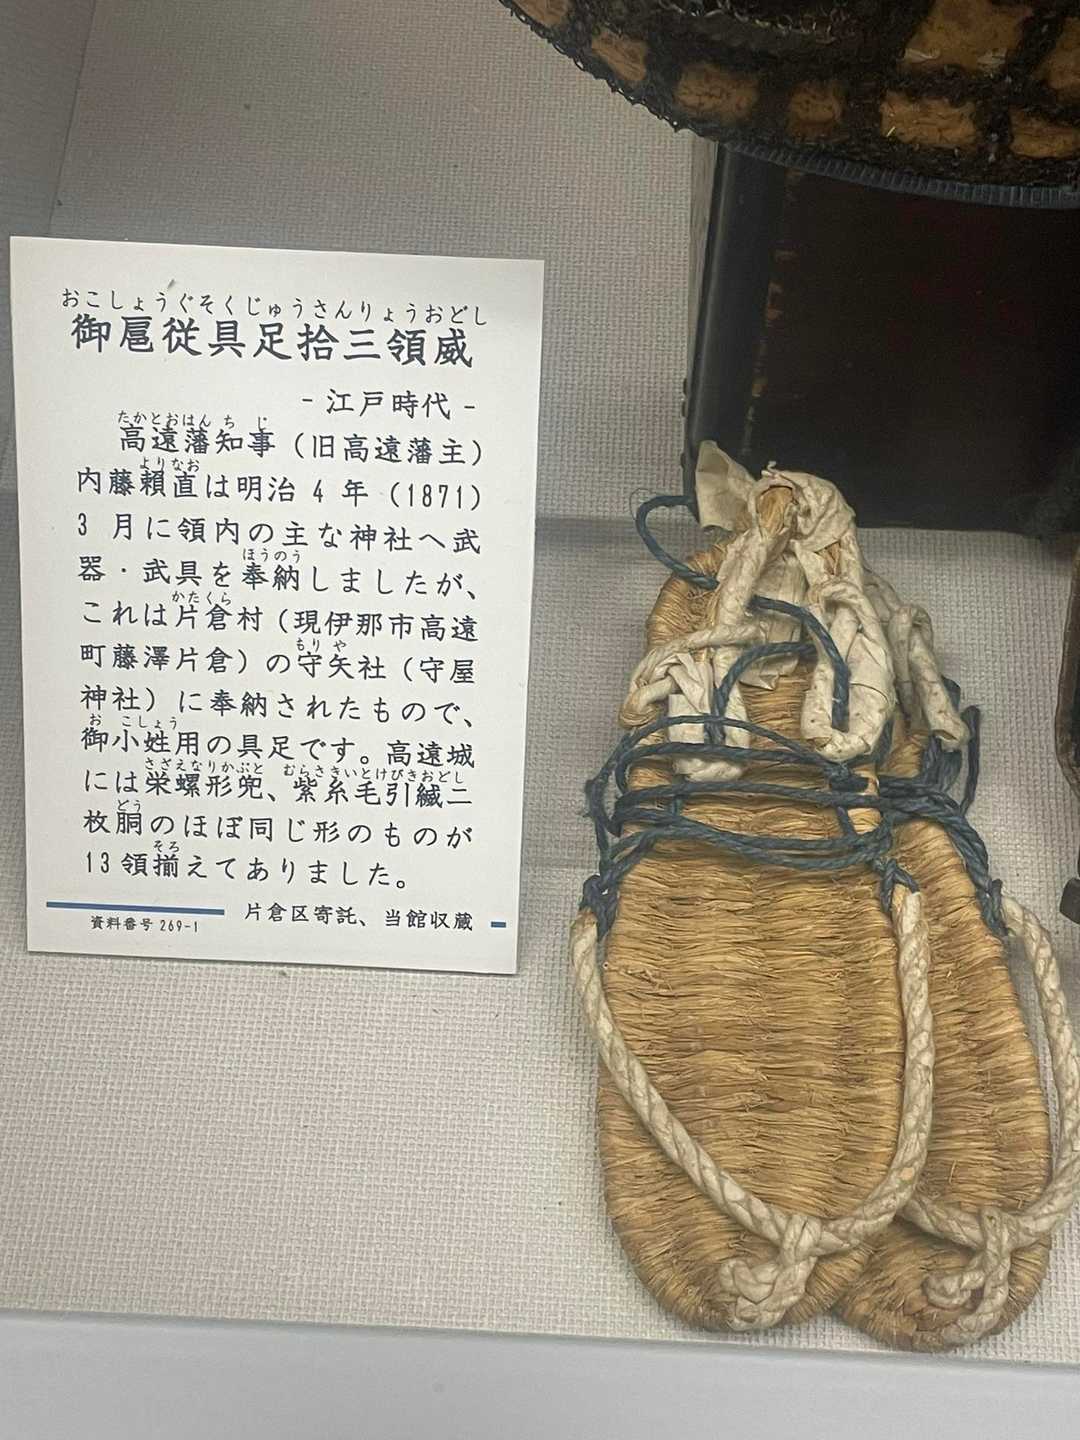 おこしょうぐそくじゅうさんりょうおどし
御扈従具足拾三領威
- 江戸時代 -
たかとおはん ち じ
高遠藩知事（旧高遠藩主）
よりなお
内藤頼直は明治 4 年（1871）
3 月に領内の主な神社へ武
ほうのう
器・武具を奉納しましたが、
かたくら
これは片倉村（現伊那市高遠
もり や
町藤澤片倉）の守矢社（守屋
神社）に奉納されたもので、
お こしょう
御小姓用の具足です。高遠城
さざえなりかぶと むらさきいとけびきおどし
には栄螺形兜、紫糸毛引縅二
どう
枚胴のほぼ同じ形のものが
そろ
13 領揃えてありました。
片倉区寄託、当館収蔵
資料番号 269-1